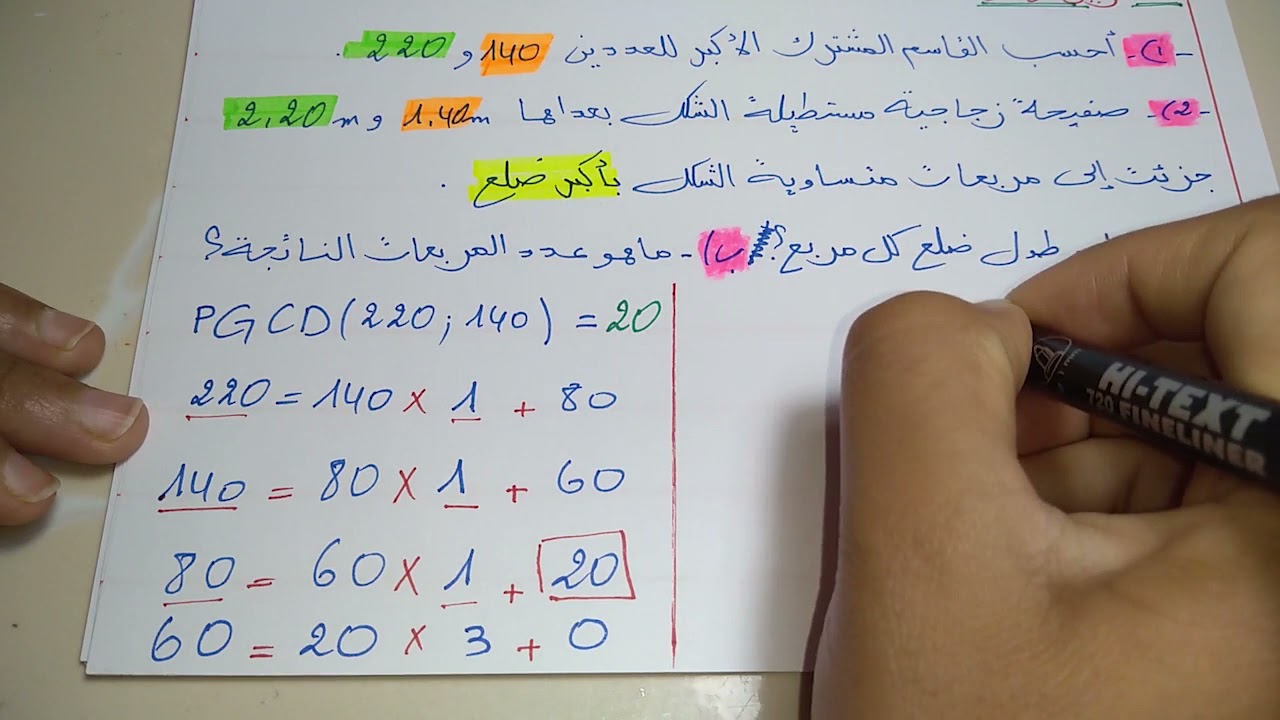 1)- أحسب القاسم المشترك الأكبر للعددين 140 و 220 .
2)- صفيحة زجاجية مستطيلة الشكل بعداها 1.40m و 2.20m
جزئت إلى مربعات متساوية الشكل بأكبر ضلع .
طول ضلع كل مربع؟ ب)- ماهو عدد المربعات الناتجة؟
PGCD(220;140) = 20
220 = 140 × 1 + 80
140 = 80 × 1 + 60
80 = 60 × 1 + 20
60 = 20 × 3 + 0
HI-TEXT
720 FINELINER